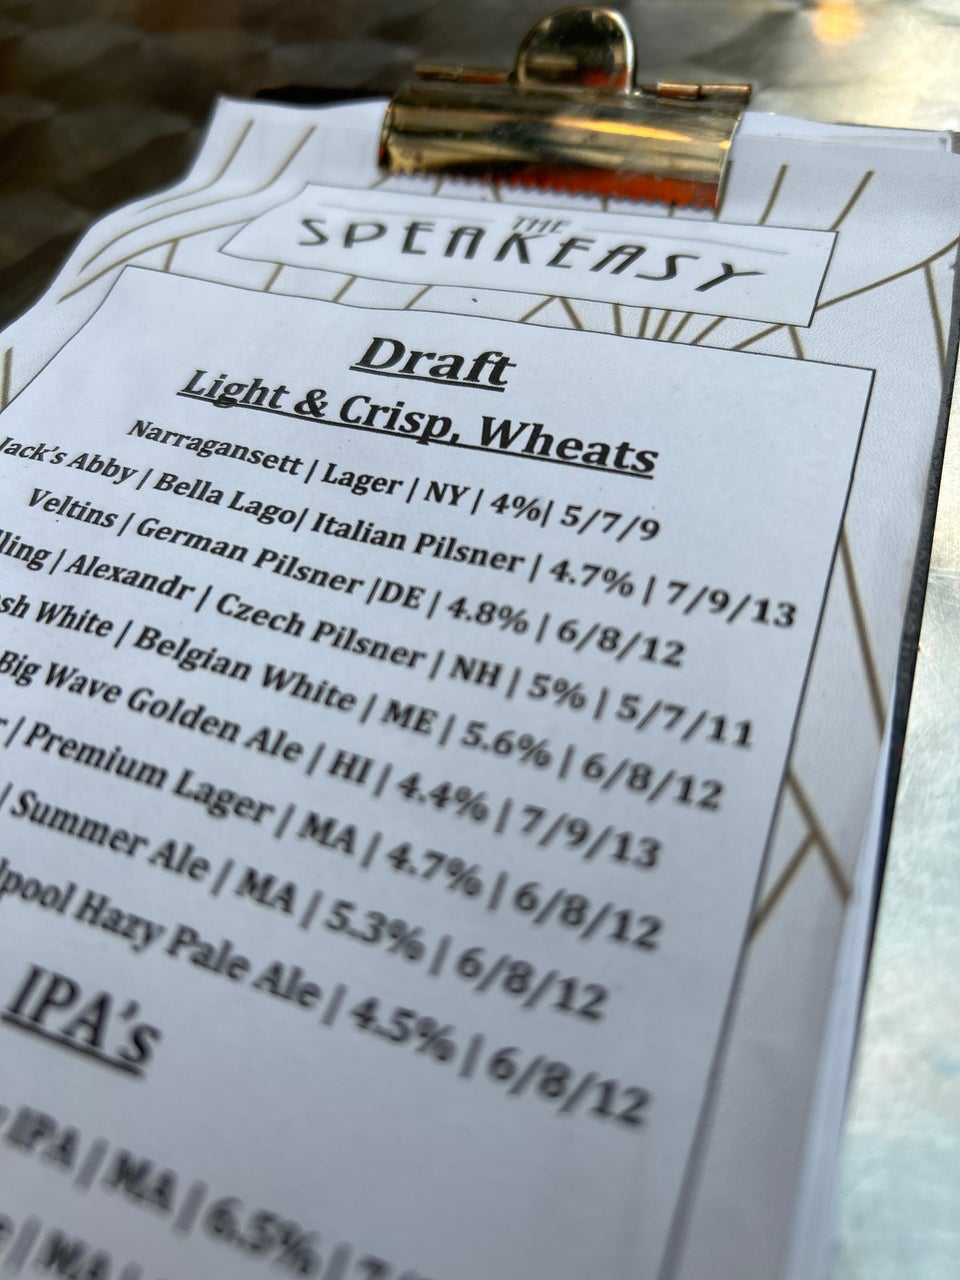 THE
SPEAKEASY
Draft
Light & Crisp, Wheats
Narragansett | Lager | NY | 4%| 5/7/9
Jack's Abby | Bella Lago| Italian Pilsner | 4.7% | 7/9/13
Veltins | German Pilsner |DE | 4.8% | 6/8/12
| Alexandr | Czech Pilsner | NH | 5% | 5/7/11
White | Belgian White | ME | 5.6% | 6/8/12
Big Wave Golden Ale | HI | 4.4% | 7/9/13
| Premium Lager | MA | 4.7% | 6/8/12
| Summer Ale | MA | 5.3% | 6/8/12
Hazy Pale Ale | 4.5% | 6/8/12
IPA's
IPA | MA | 6.5% | 7/
| MA |